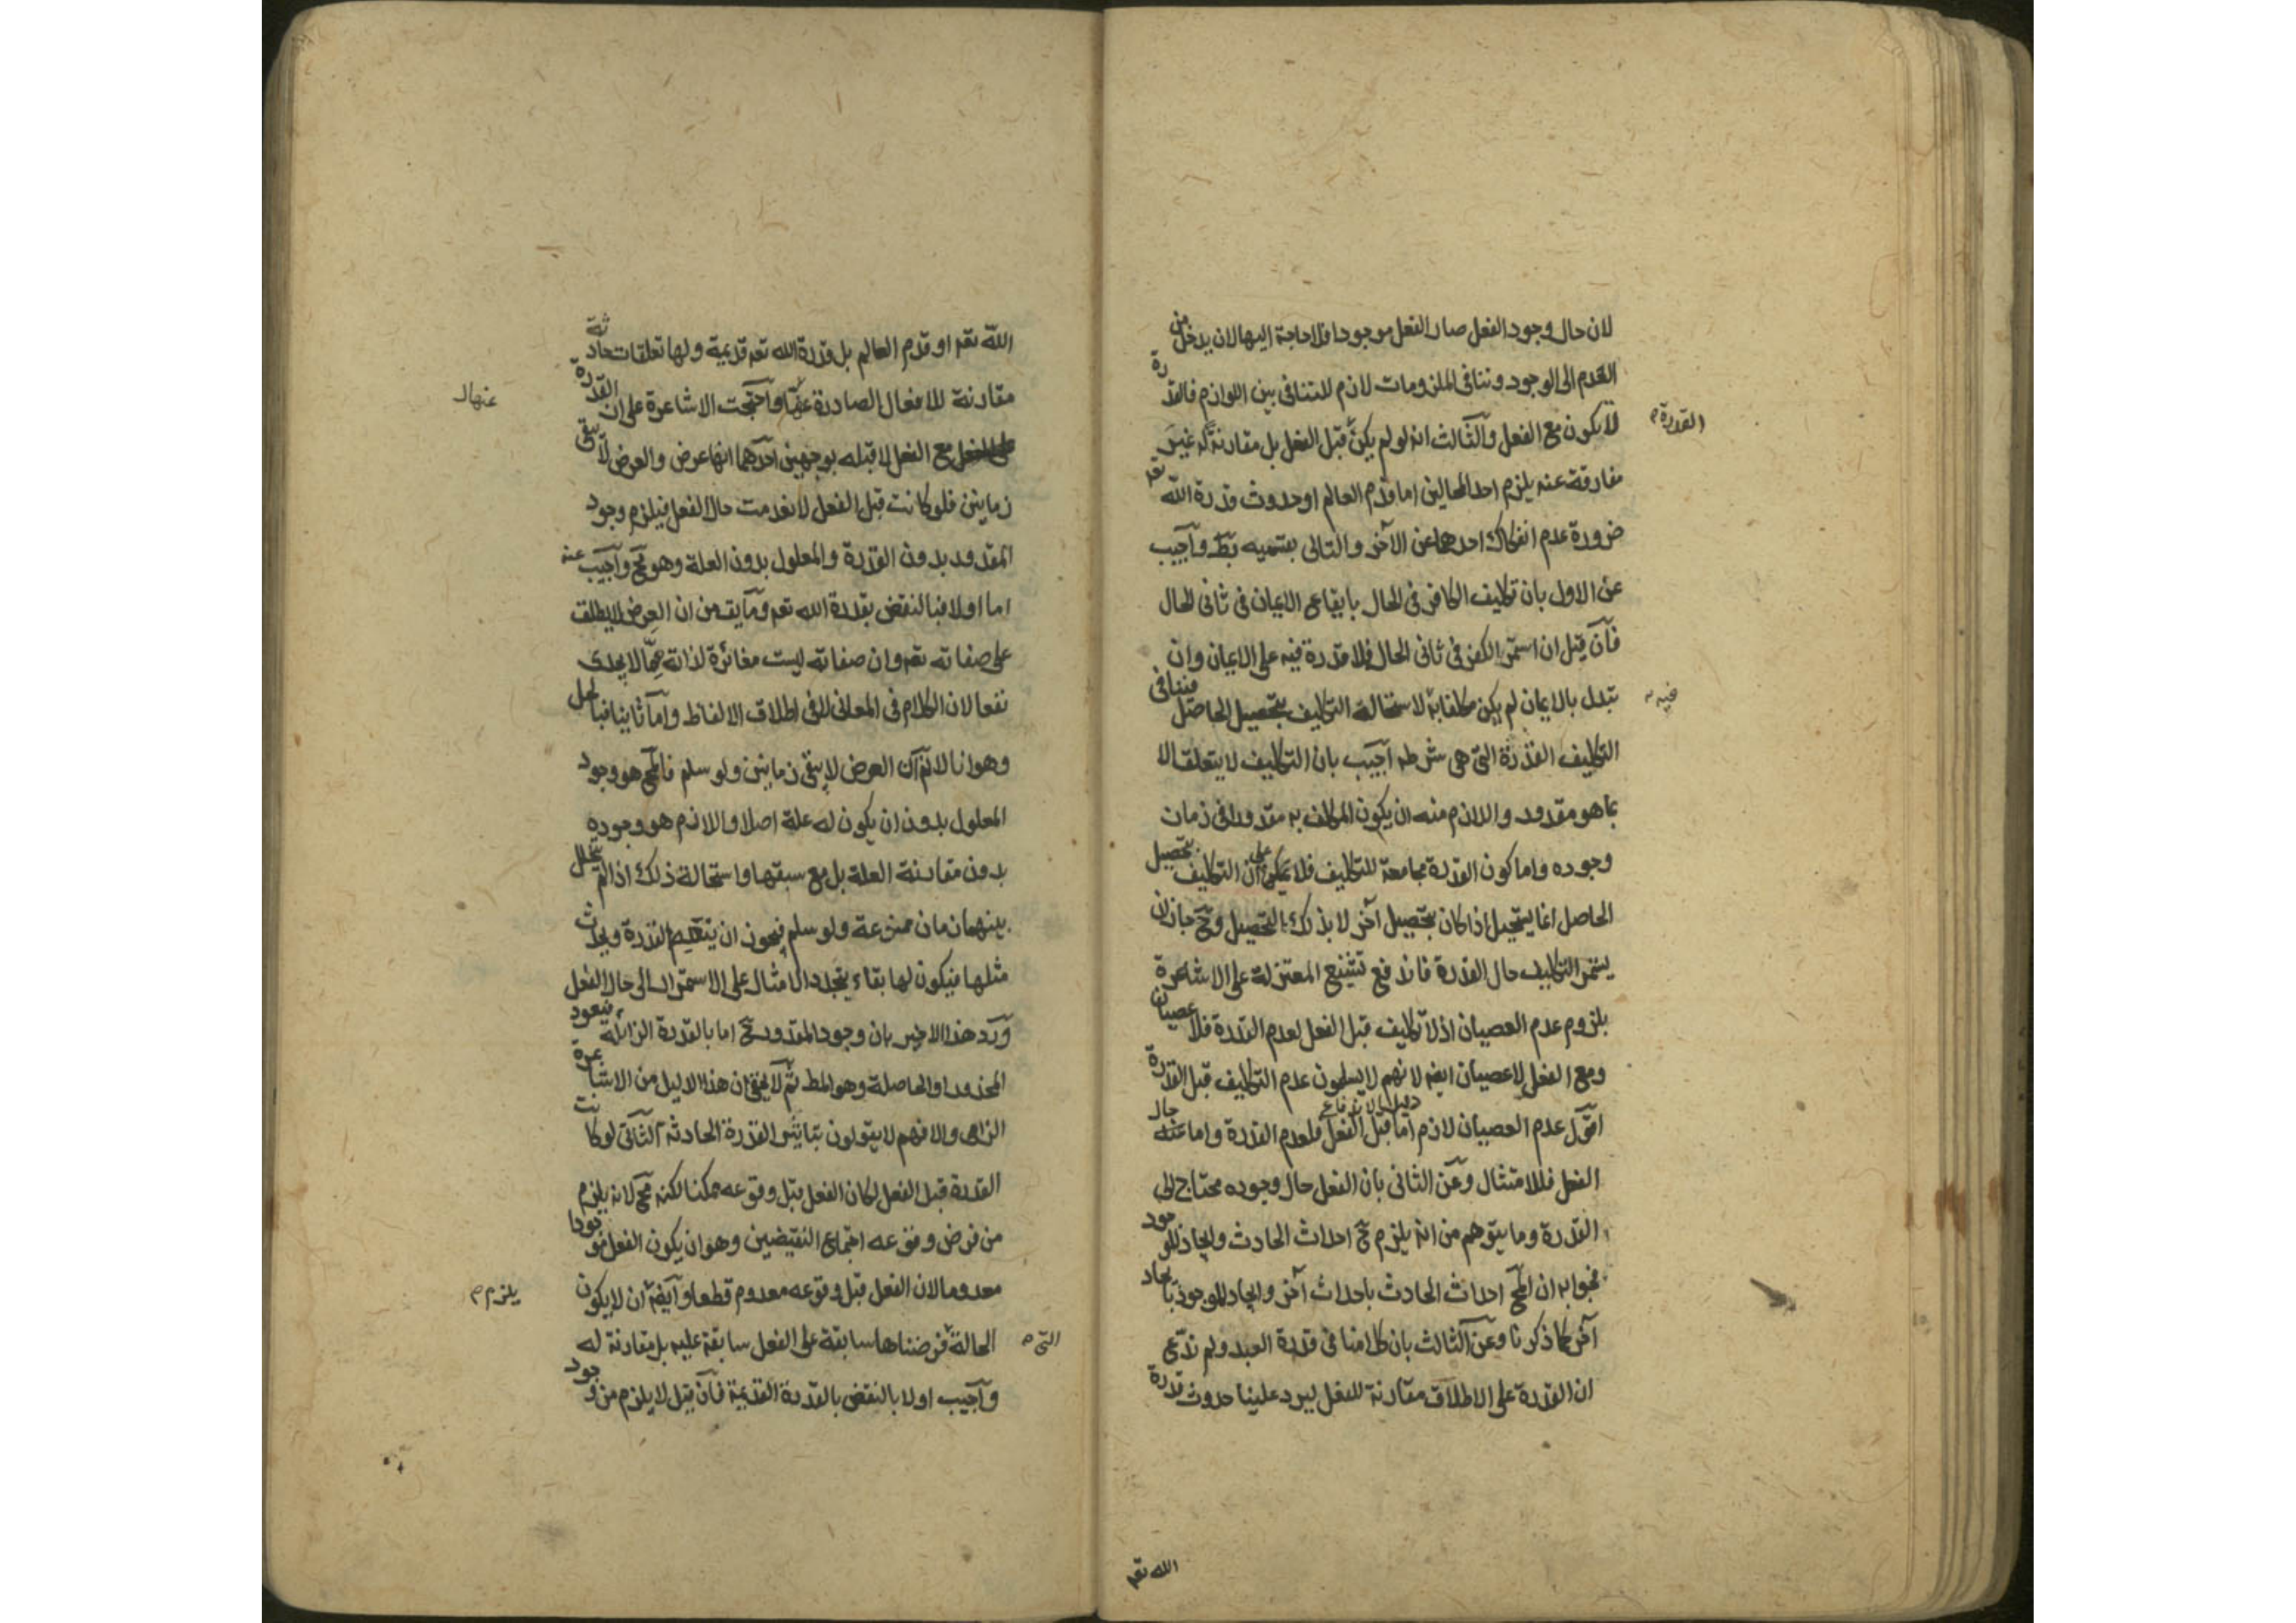 لان حال وجود الفعل صار الفعل موجودا فلا حاجة اليها لان يدخل من
العدم الى الوجود وتنافى الملزومات لازم للتنافى بين اللوازم فالقدرة
لا يكون مع الفعل والثالث انه لو لم يكن قبل الفعل بل مقارنة له غير
القدرة م
مفارقة عنه يلزم احد المحالين اما قدم العالم او حدوث قدرة الله تعم
ضرورة عدم انفكاك احدهما عن الآخر والتالى بقسميه بط واجيب
عن الاول بان تكليف الكافر فى الحال بايقاع الايمان فى ثانى الحال
فان قيل ان استمر الكفر فى ثانى الحال فلا قدرة فيه على الايمان وان
تبدل بالايمان لم يكن مكلفا به لاستحالة التكليف بتحصيل الحاصل فينافى
فيه
التكليف القدرة التى هى شرطه اجيب بان التكليف لا يتعلق الا
بما هو مقدور واللازم منه ان يكون المكلف به مقدورا فى زمان
وجوده واما كون القدرة مجامعة للتكليف فلا على ان التكليف بتحصيل
الحاصل انما يستحيل اذا كان بتحصيل آخر لا بذلك التحصيل وح جاز ان
يستمر التكليف حال القدرة فاندفع تشنيع المعتزلة على الاشاعرة
بلزوم عدم العصيان اذ لا تكليف قبل الفعل لعدم القدرة فلا عصيان
ومع الفعل لا عصيان ايضه لانهم لا يسلمون عدم التكليف قبل القدرة
اقول عدم العصيان لازم اما قبل الفعل فلعدم القدرة واما حال
الفعل فللامتثال وعن الثانى بان الفعل حال وجوده محتاج الى
القدرة وما يتوهم من انه يلزم ح احداث الحادث وايجاد الموجود
فجوابه ان المح احداث الحادث باحداث آخر وايجاد الموجود بايجاد
آخر كما ذكرنا وعن الثالث بان كلامنا فى قدرة العبد ولم ندع
ان القدرة على الاطلاق مقارنة للفعل ليرد علينا حدوث قدرة
الله تعم
الله تعم او قدم العالم بل قدرة الله تعم قديمة ولها تعلقات حادثة
مقارنة للافعال الصادرة عنها واحتجت الاشاعرة على ان القدرة
مع الفعل لا قبله بوجهين احدهما انها عرض والعرض لا يبقى
زمانين فلو كانت قبل الفعل لانعدمت حال الفعل فيلزم وجود
المقدور بدون القدرة والمعلول بدون العلة وهو مح واجيب عنه
اما اولا فبالنقض بقدرة الله تعم وما يق من ان العرض لا يطلق
على صفاته تعم وان صفاته ليست مغائرة لذاته مما لا يجدى
نفعا لان الكلام فى المعانى لا فى اطلاق الالفاظ واما ثانيا فبالحل
وهو انا لا نم ان العرض لا يبقى زمانين ولو سلم فالمح هو وجود
المعلول بدون ان يكون له علة اصلا واللازم هو وجوده
بدون مقارنة العلة بل مع سبقها واستحالة ذلك اذا لم يتخلل
بينهما زمان ممنوعة ولو سلم فيجوز ان ينعدم القدرة ويحدث
مثلها فيكون لها بقاء بتجدد الامثال على الاستمرار الى حال الفعل
ورد هذا الاخير بان وجود المقدور ح اما بالقدرة الزائلة فيعود
المحذور او الحاصلة وهو المط ثم لا يخفى ان هذا الدليل من الاشاعرة
الزامى والا فهم لا يقولون بتاثير القدرة الحادثة الثانى لو كانت
القدرة قبل الفعل لكان الفعل قبل وقوعه ممكنا لكنه مح لانه يلزم
من فرض وقوعه اجتماع النقيضين وهو ان يكون الفعل موجودا
معدوما لان الفعل قبل وقوعه معدوم قطعا وايضه ان لا يكون
يلزم م
الحالة فرضناها سابقة على الفعل سابقة عليه بل مقارنة له
التى م
واجيب اولا بالنقض بالقدرة القديمة فان قيل لا يلزم من وجود